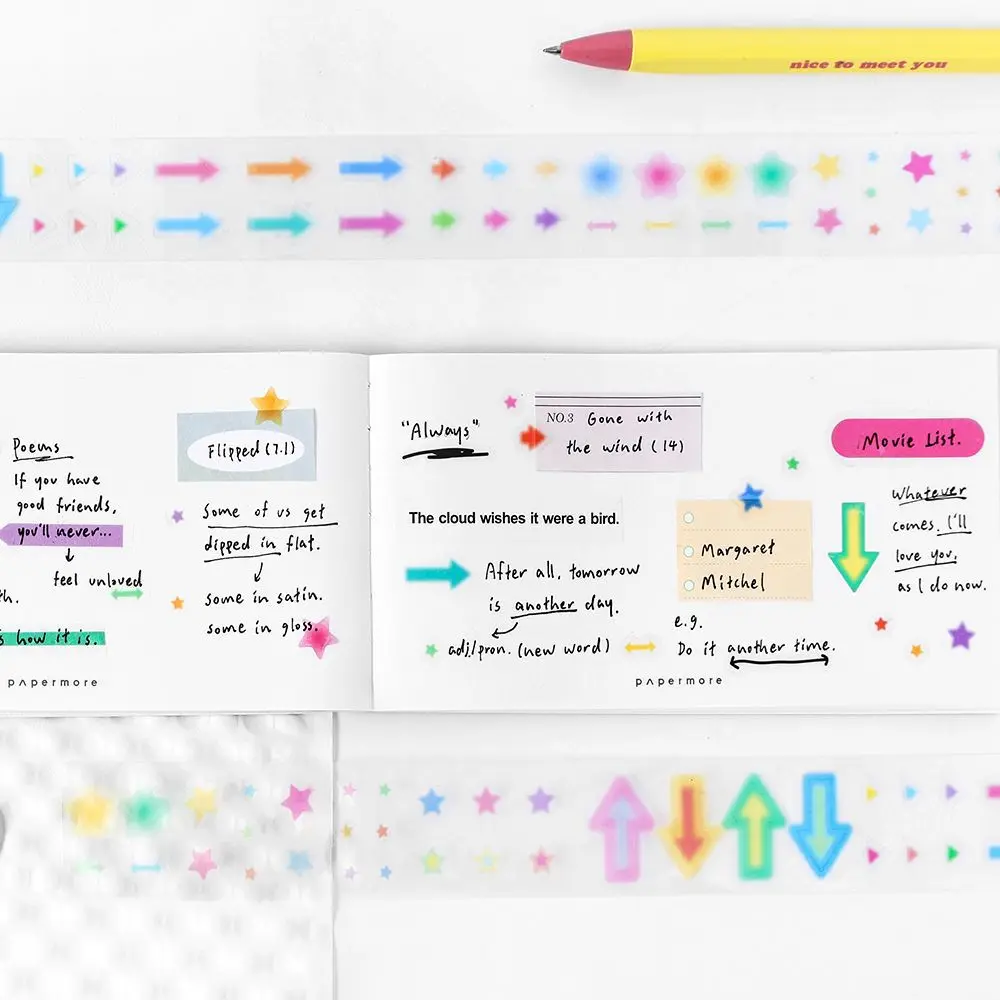 nice to meet you
Poems
If you have
good friends,
you'll never...
feel unloved
th.
s how it is.
Flipped (7.1)
Some of us get
dipped in flat.
some in satin.
some in gloss.
papermore
"Always"
NO.3 Gone with
the wind (14)
The cloud wishes it were a bird.
After all, tomorrow
is another day.
adj/pron. (new word)
Margaret
Mitchel
e.g.
Do it another time.
Movie List.
Whatever
comes, I'll
love you,
as I do now.
papermore